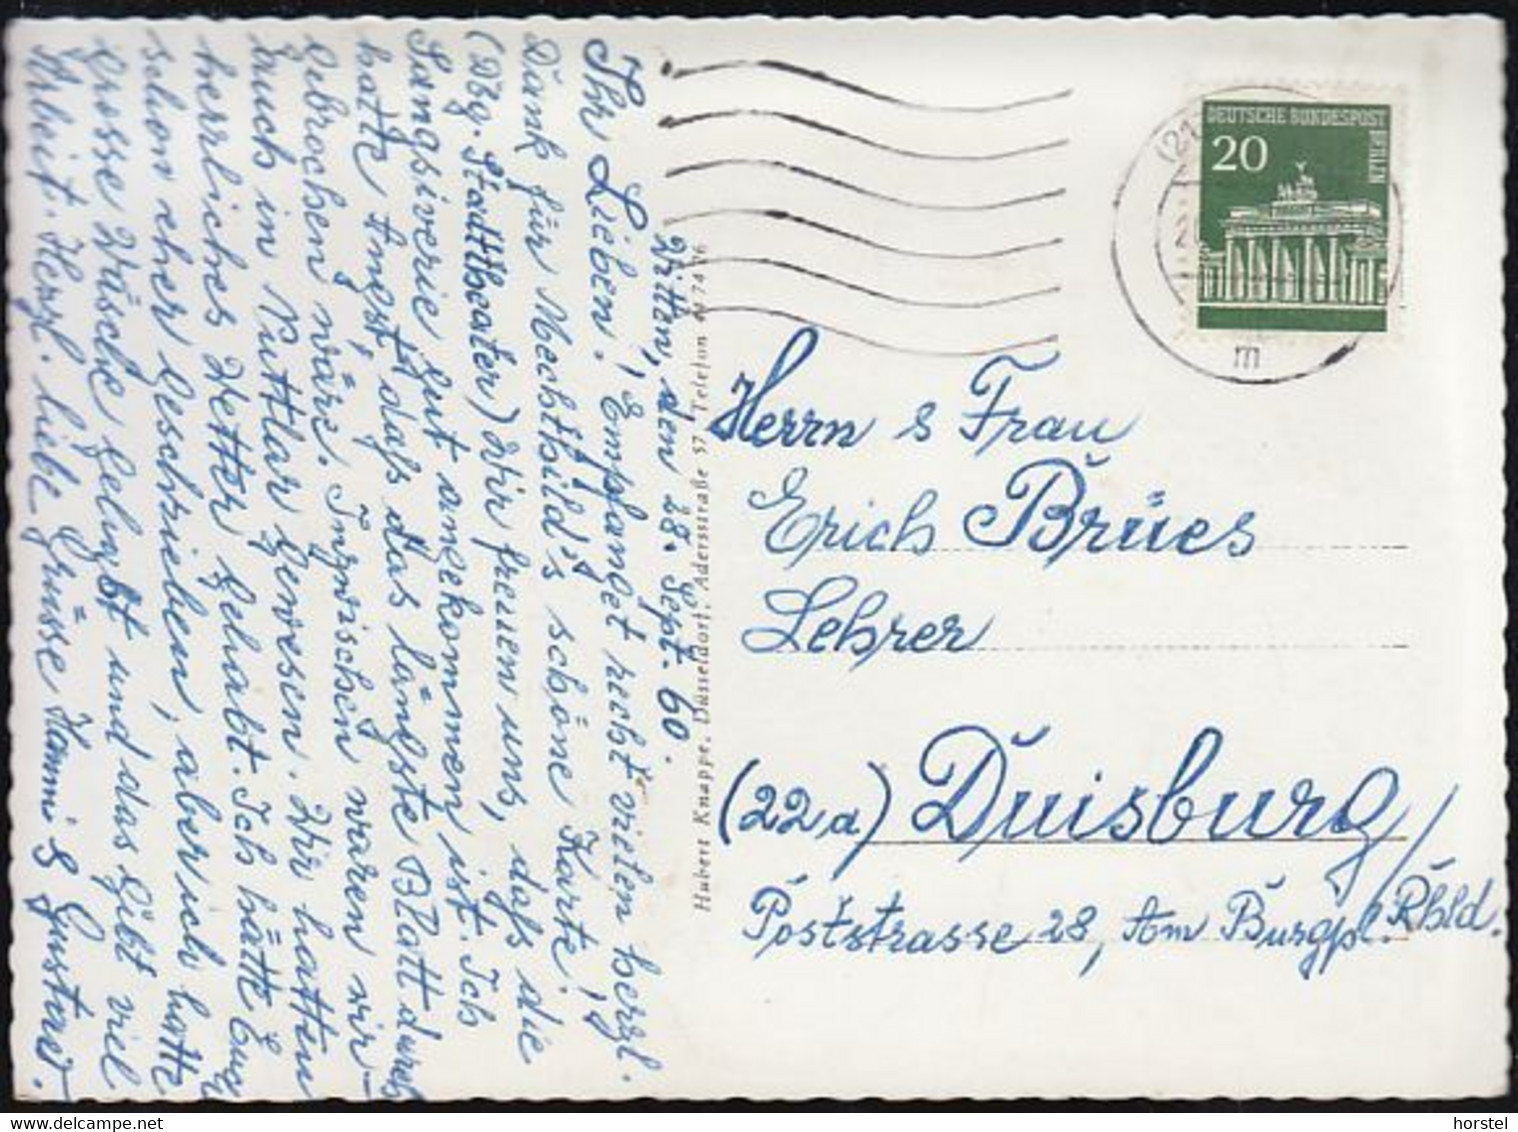 Witten, den 28. Sept. 60.
Ihr Lieben! Empfanget recht vielen herzl.
Dank für Mechthild's schöne Karte!
(Dbg. Stadttheater) Wir freuen uns, daß die
Sangsiverie gut angekommen ist. Ich
hatte Angst, daß das längste Blatt durch
gebrochen wäre. Inzwischen waren wir
auch in Puttlar gewesen. Wir hatten
herrliches Wetter gehabt. Ich hätte Euch
schon eher geschrieben, aber ich hatte
grosse Wäsche gehabt und das gibt viel
Arbeit. Herzl. liebe Grüsse Hanni & Gustav.
Hubert Knappe, Düsseldorf, Adersstraße 57, Telefon
DEUTSCHE BUNDESPOST
BERLIN
20
(21
m
Herrn & Frau
Erich Brües
Lehrer
(22a) Duisburg/
Rhld.
Poststrasse 28, Am Burgpl.
horstel